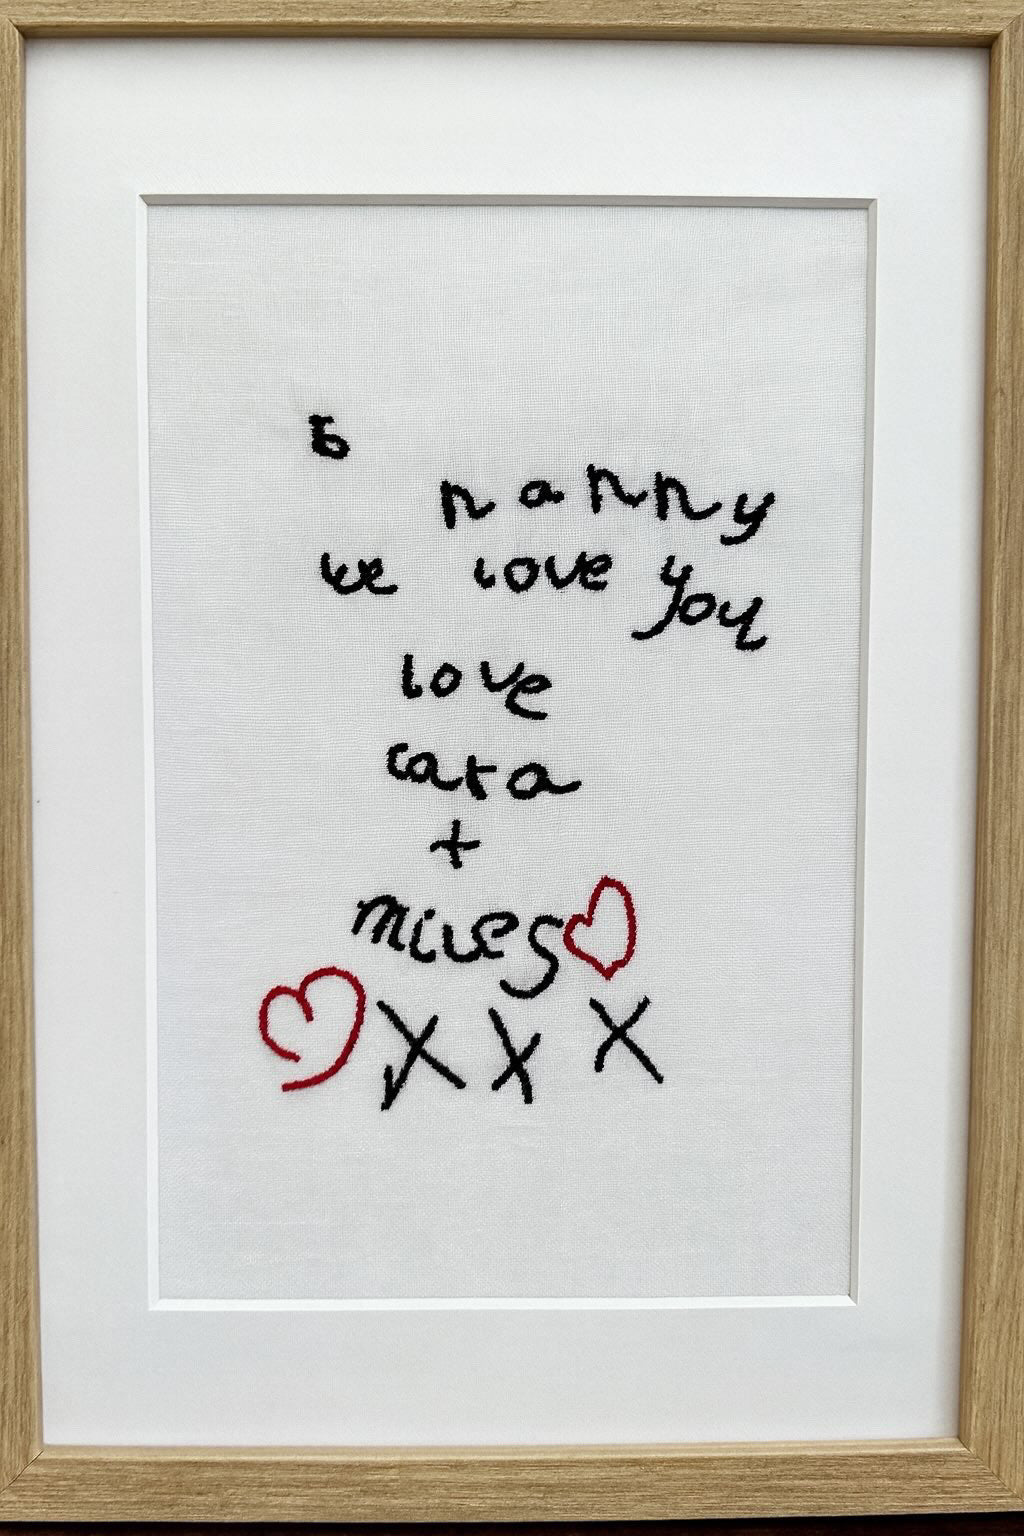 to
nanny
we love you
love
cara
+
miles
x x x